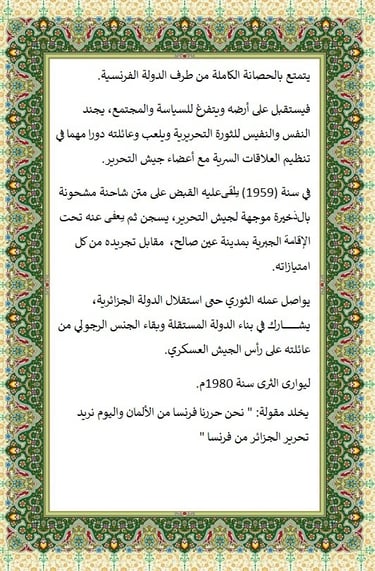 يتمتع بالحصانة الكاملة من طرف الدولة الفرنسية.
فيستقبل على أرضه ويتفرغ للسياسة والمجتمع، يجند
النفس والنفيس للثورة التحريرية ويلعب وعائلته دورا مهما في
تنظيم العلاقات السرية مع أعضاء جيش التحرير.
في سنة (1959) يلقى عليه القبض على متن شاحنة مشحونة
بالذخيرة موجهة لجيش التحرير، يسجن ثم يعفى عنه تحت
الإقامة الجبرية بمدينة عين صالح، مقابل تجريده من كل
امتيازاته.
يواصل عمله الثوري حتى استقلال الدولة الجزائرية،
يشـــــارك في بناء الدولة المستقلة وبقاء الجنس الرجولي من
عائلته على رأس الجيش العسكري.
ليوارى الثرى سنة 1980م.
يخلد مقولة: " نحن حررنا فرنسا من الألمان واليوم نريد
تحرير الجزائر من فرنسا "